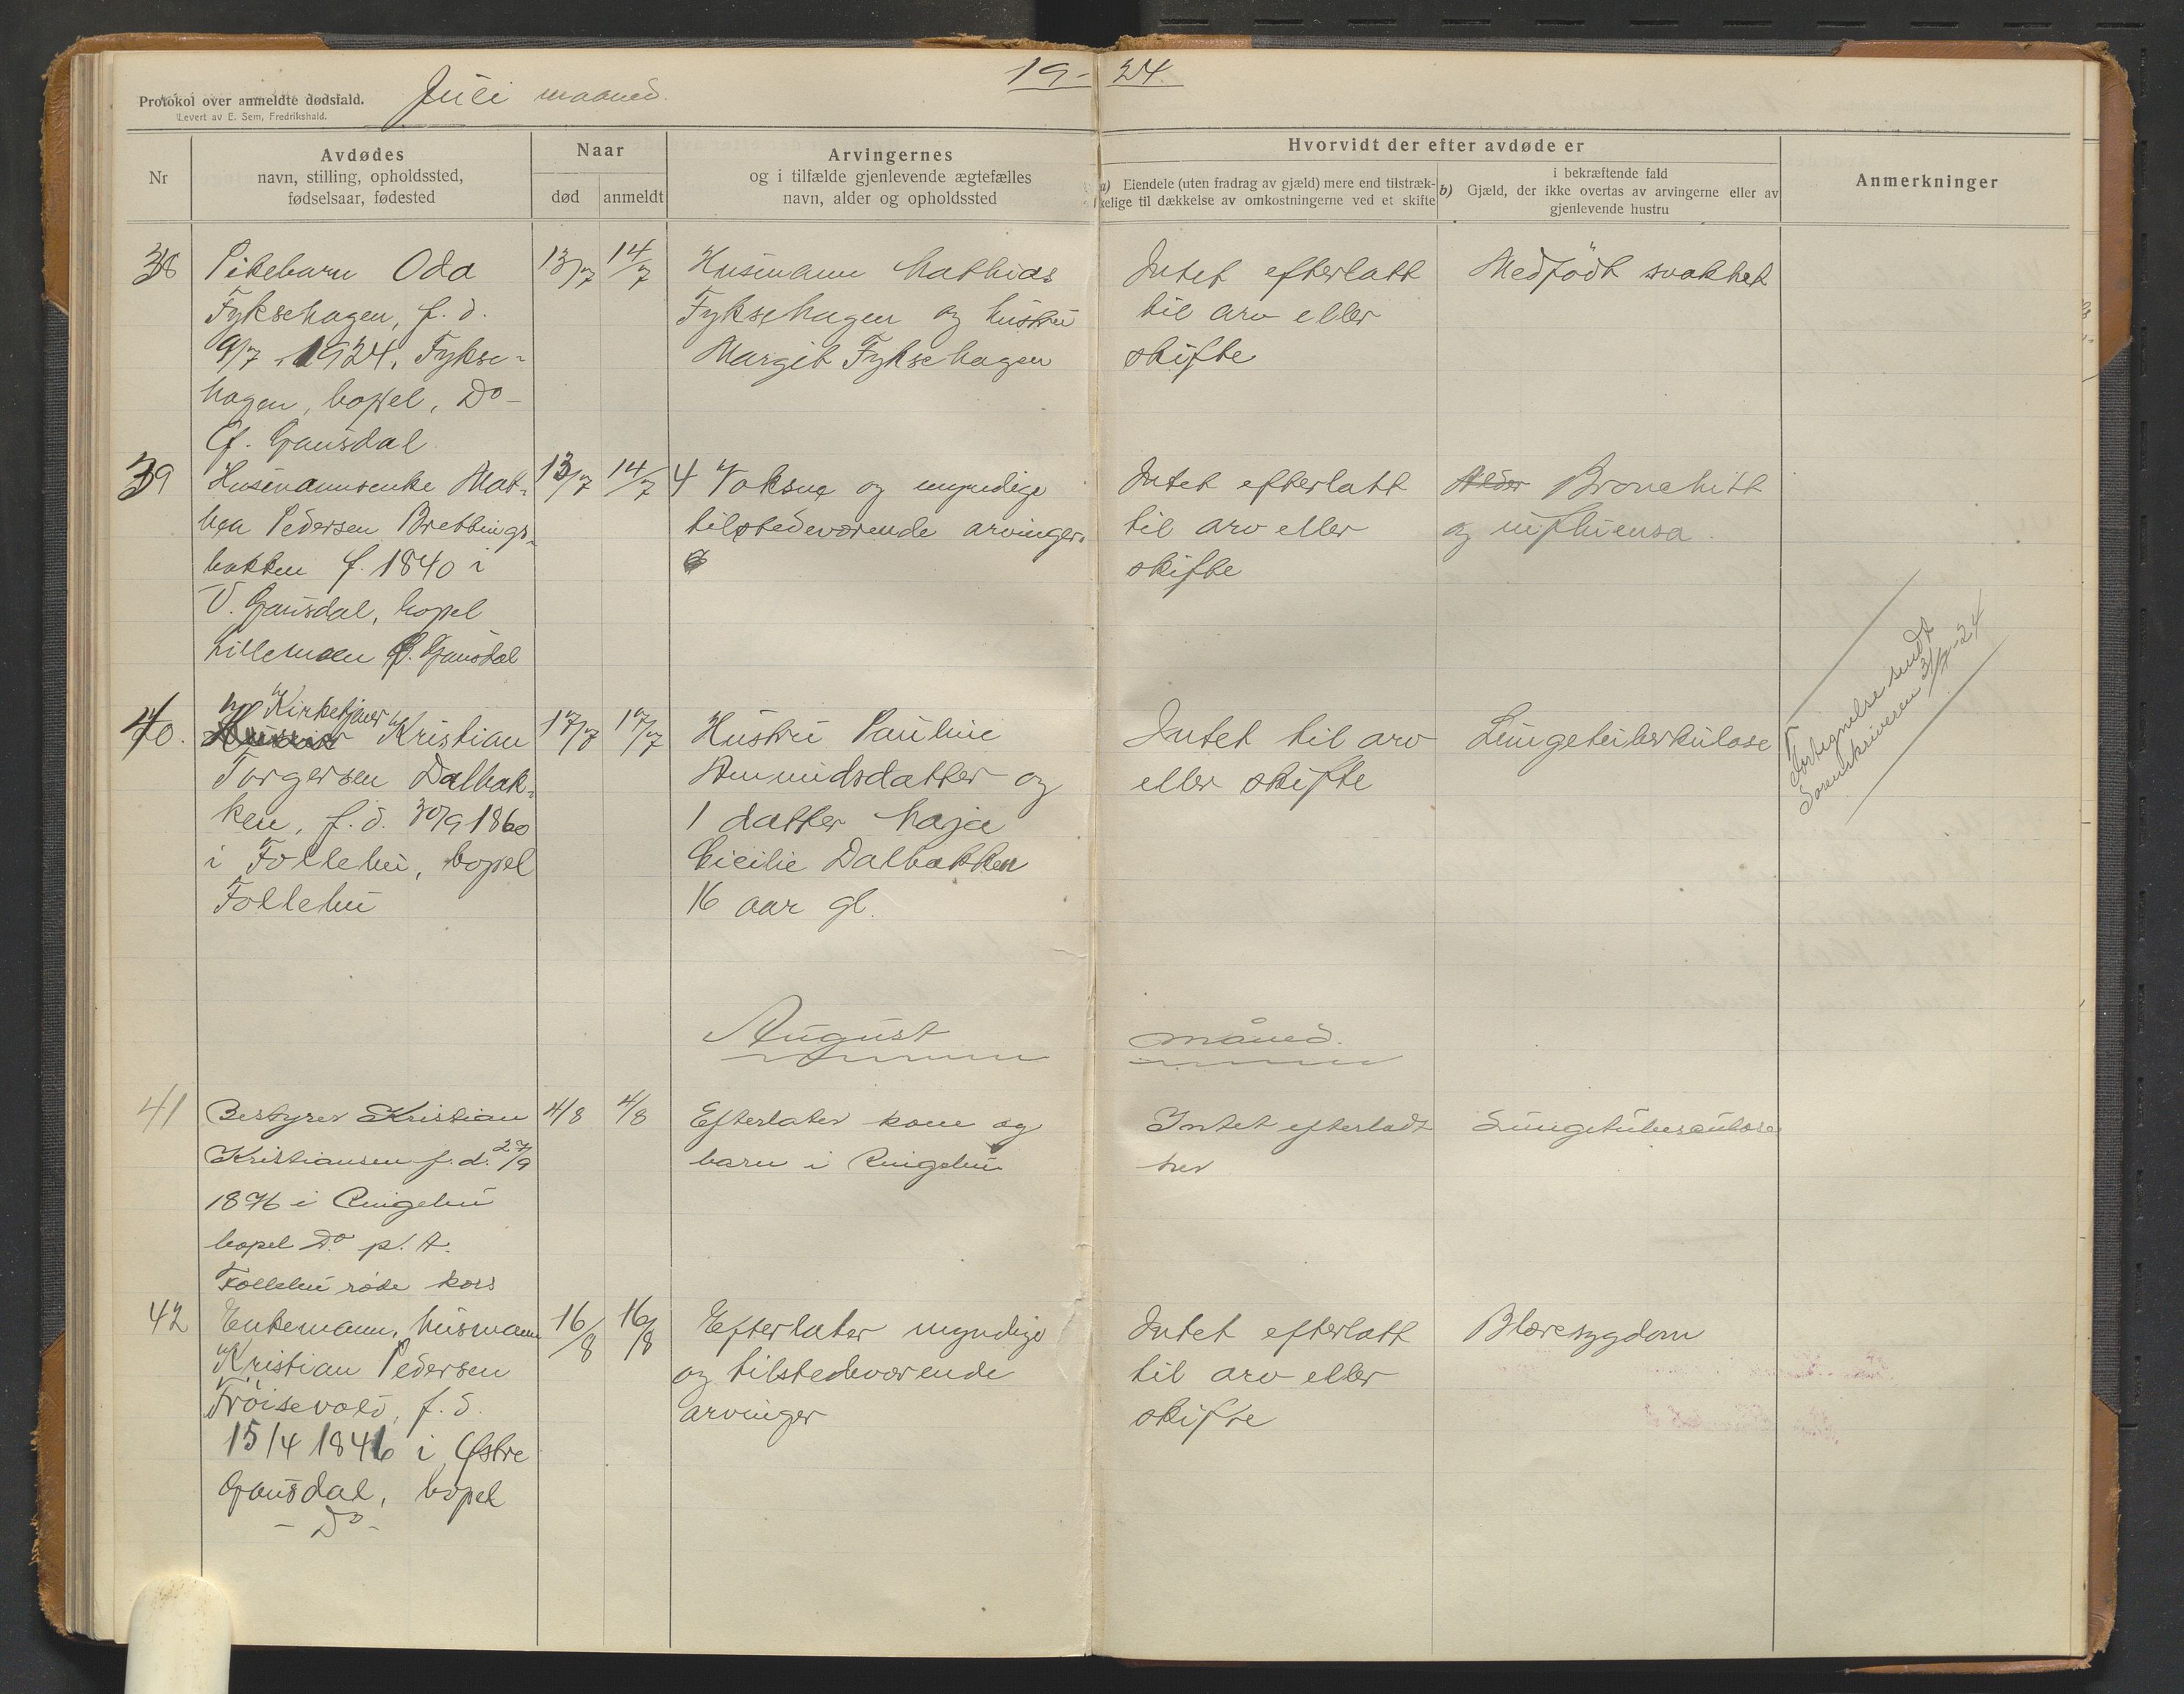 Protokol over anmeldte dødsfald. Juli maaned. 19-24
Levert av E. Sem, Fredrikshald.
Nr
Avdødes
navn, stilling, opholdssted,
fødselsaar, fødested
Naar
død
anmeldt
Arvingernes
og i tilfælde gjenlevende ægtefælles
navn, alder og opholdssted
Hvorvidt der efter avdøde er
a) Eiendele (uten fradrag av gjæld) mere end tilstræk-
kelige til dækkelse av omkostningerne ved et skifte
b) i bekræftende fald
Gjæld, der ikke overtas av arvingerne eller av
gjenlevende hustru
Anmerkninger
38
Pikebarn Oda
Fyksehagen, f. d.
9/7 1924, Fykse-
hagen, bopel, Do -
Ø. Gausdal
13/7
14/7
Husmann Mathias
Fyksehagen og hustru
Margit Fyksehagen
Intet efterlatt
til arv eller
skifte
Medfødt svakhet
39
Husmannsenke Mat-
hea Pedersen Brettings-
bakken f. 1840 i
V. Gausdal, bopel
Lillemoen Ø. Gausdal
13/7
14/7
4 voksne og myndige
tilstedeværende arvinger.
Intet efterlatt
til arv eller
skifte
Alder Bronchitt
og influensa.
40.
Kirketjener Kristian
Torgersen Dalbak-
ken, f. d. 30/9 1860
i Follebu, bopel
Follebu
17/7
17/7
Hustru Pauline
Amundsdatter og
1 datter Maja
Cicilie Dalbakken
16 aar gl.
Intet til arv
eller skifte
Lungetuberkulose
Fortegnelse sendt
Sorenskriveren 31/7-24
August måned.
41
Bestyrer Kristian
Kristiansen f. d. 27/9
1876 i Ringebu
bopel Do p. t.
Follebu røde kors
4/8
4/8
Efterlater kone og
barn i Ringebu
Intet efterladt
her
Lungetuberculose
42
Enkemann, husmann
Kristian Pedersen
Frøisevold, f. d.
15/4 1846 i Østre
Gausdal, bopel
- Do -
16/8
16/8
Efterlater myndige
og tilstedeværende
arvinger
Intet efterlatt
til arv eller
skifte
Blæresygdom